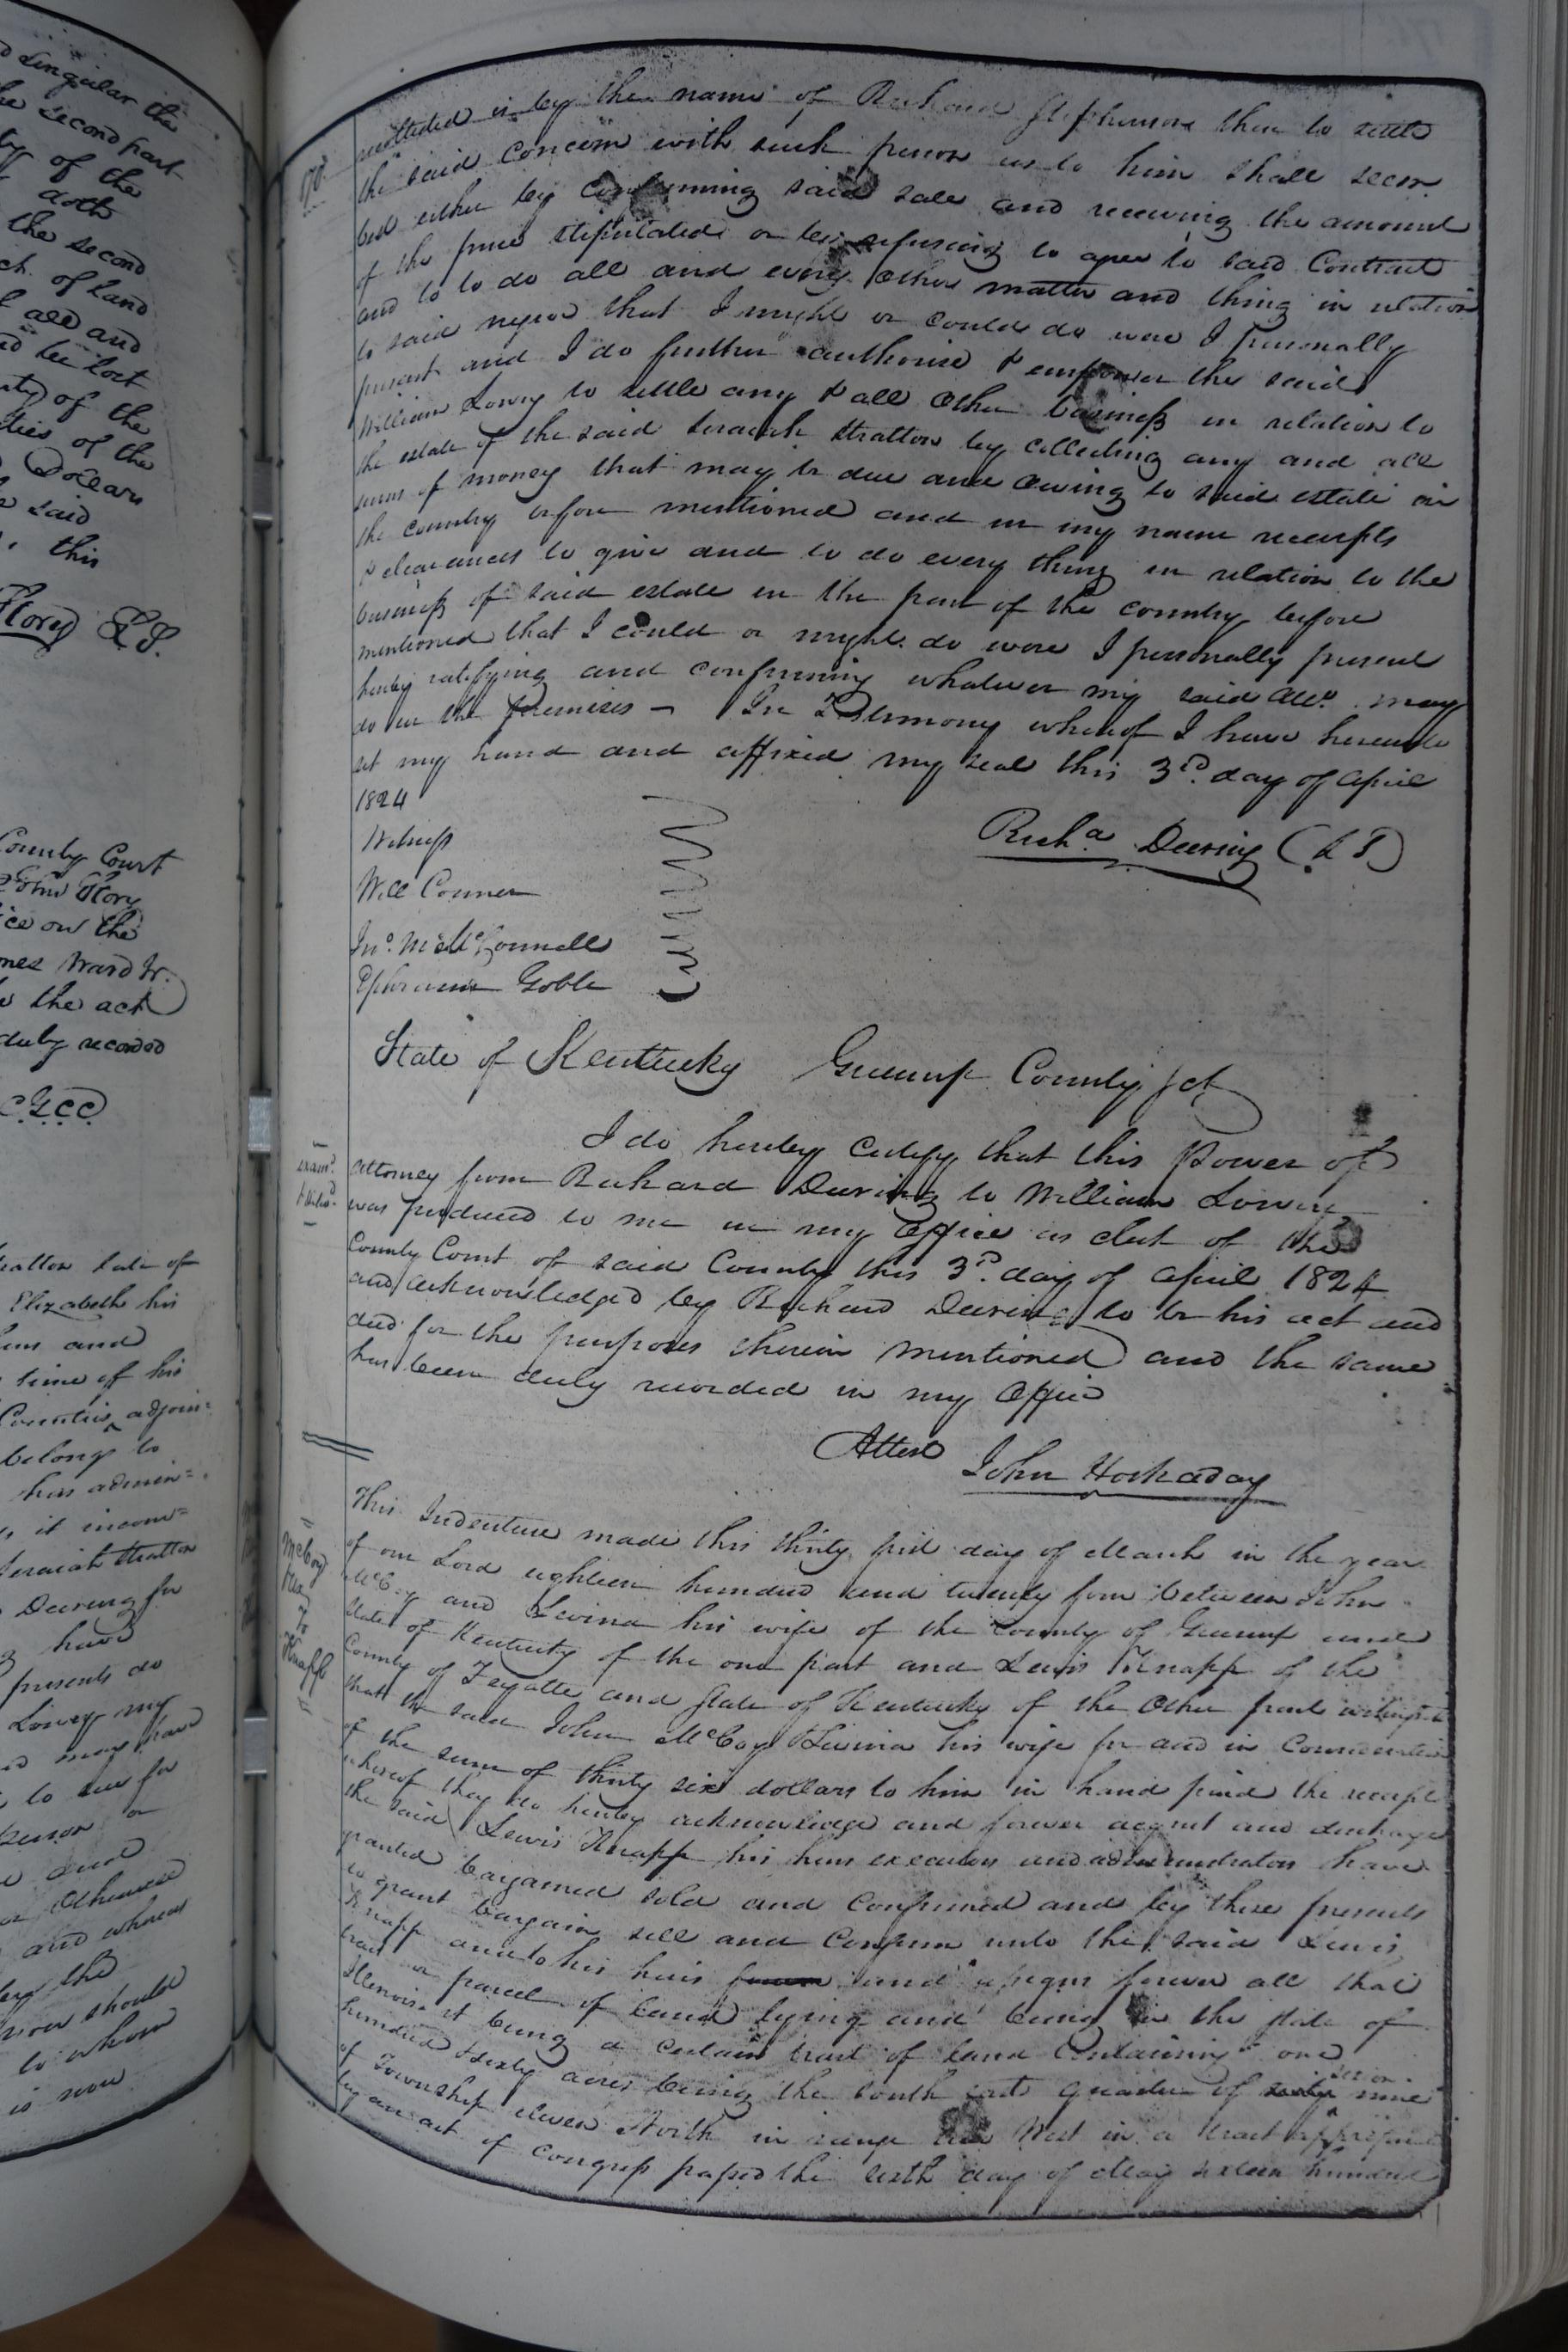 d singular the
he second part
by of the
doth
the second
ch of land
f all and
nd be lost
rty of the
ties of the
Dollars
e said
this
Story L.S.
County Court
John Story
ice on the
mes Ward Jr.
to the act
duly recorded
C.G.C.C.
ratton late of
Elizabeth his
and
time of his
Counties adjoin=
belong to
has admin=
it incon=
Seraiah Stratton
Deering for
have
presents do
Lowry my
may have
to sue for
person or
and
or Otherwise
and whereas
by the
should
to whom
is now
by the name of Richard Stephenson then to settle
the said Concern with such person as to him shall seem
best either by Confirming said sale and receiving the amount
of the price stipulated or by refusing to agree to said Contract
and to to do all and every Other matter and thing in relation
to said negro that I might or could do were I personally
present and I do further authorise & empower the said
William Lowry to settle any & all Other business in relation to
the estate of the said Seraiah Stratton by collecting any and all
sums of money that may be due and Owing to said estate in
the country before mentioned and in my name receipts
& clearances to give and to do every thing in relation to the
business of said estate in the part of the country before
mentioned that I could or might do were I personally present
hereby ratifying and confirming whatever my said atto. may
do in the premises — In Testimony whereof I have hereunto
set my hand and affixed my seal this 3d. day of april
1824
Witness
Richd Deering (L S)
Will Conner
Jno. M McConnell
Ephraim Goble
State of Kentucky Greenup County Sct
I do hereby Certify that this Power of
attorney from Richard Deering to William Lowry
was produced to me in my Office as clerk of the
County Court of said County this 3d. day of april 1824
and acknowledged by Richard Deering to be his act and
deed for the purposes therein mentioned and the same
has been duly recorded in my Office
Attest John Hockaday
McCoy
&ux
To
Knapp
This Indenture made this thirty first day of March in the year
of our Lord eighteen hundred and twenty four between John
McCoy and Levina his wife of the County of Greenup and
State of Kentucky of the one part and Lewis Knapp of the
County of Fayette and State of Kentucky of the Other part witnesseth
that the said John McCoy & Levina his wife for and in Consideration
of the sum of thirty six dollars to him in hand paid the receipt
whereof they do hereby acknowledge and forever acquit and discharge
the said Lewis Knapp his heirs executors and administrators have
granted bargained sold and Confirmed and by these presents
do grant bargain sell and Confirm unto the said Lewis
Knapp and to his heirs and assigns forever all that
tract or parcel of land lying and being in the State of
Illinois it being a certain tract of land Containing one
hundred & sixty acres being the south east quarter of nine
of Township eleven North in range West in a tract appropriated
by an act of Congress passed the sixth day of May sixteen hundred